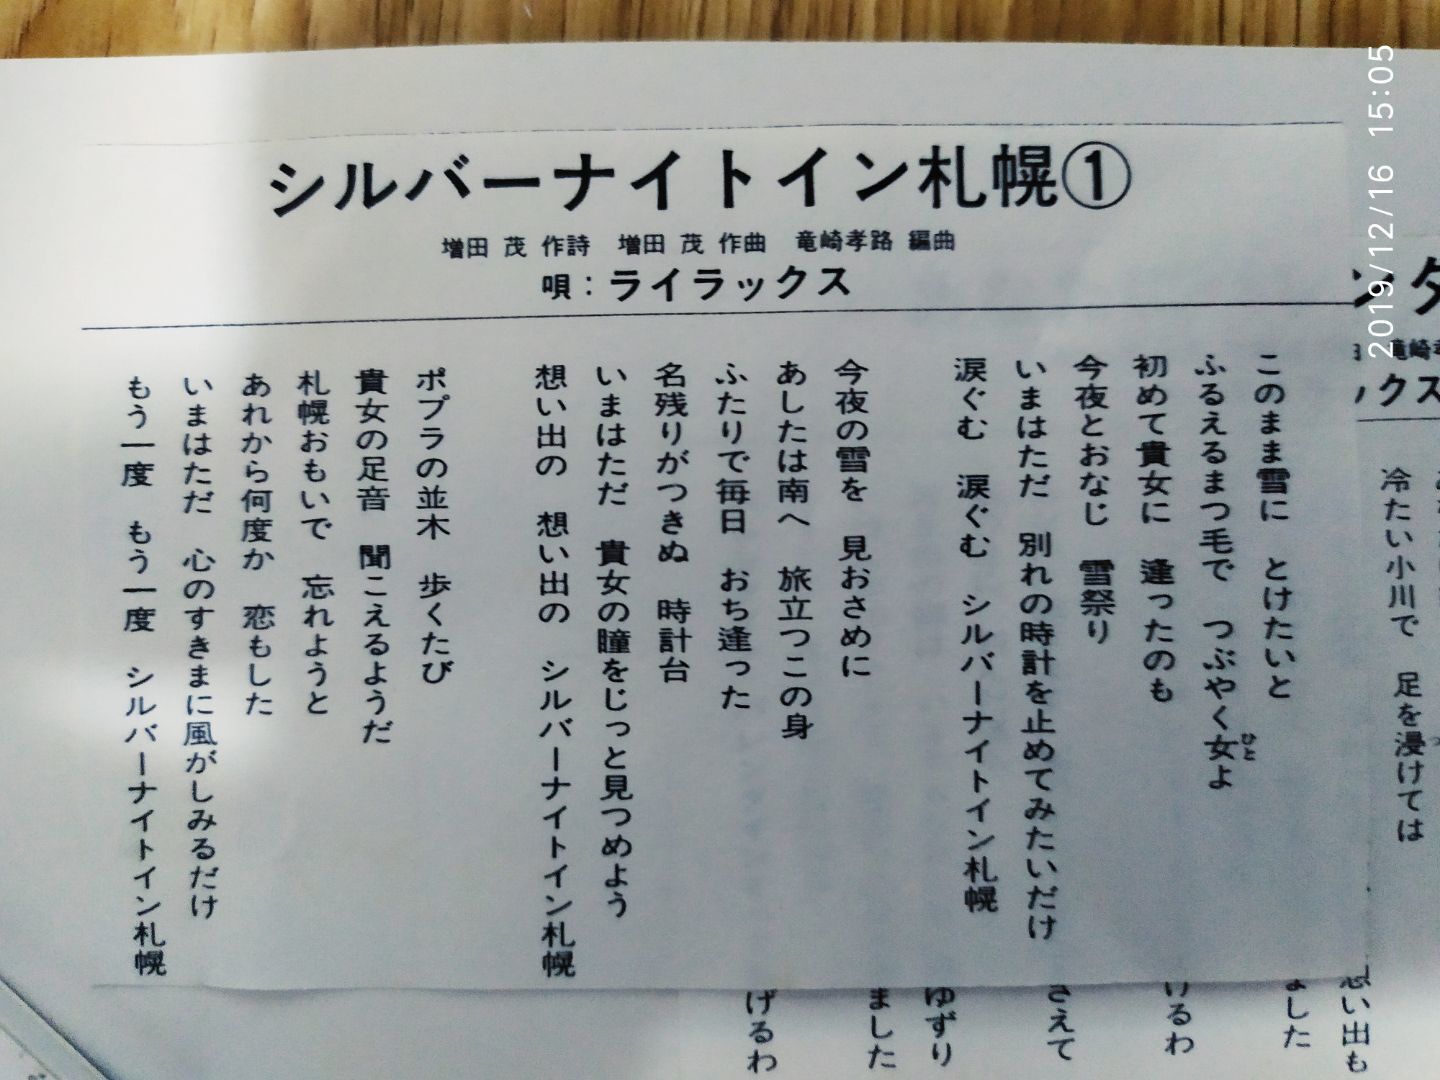 シルバーナイトイン札幌①
増田 茂 作詩 増田 茂 作曲 竜崎孝路 編曲
唄：ライラックス
このまま雪に とけたいと
ふるえるまつ毛で つぶやく女よ
ひと
初めて貴女に 逢ったのも
今夜とおなじ 雪祭り
いまはただ 別れの時計を止めてみたいだけ
涙ぐむ 涙ぐむ シルバーナイトイン札幌
今夜の雪を 見おさめに
あしたは南へ 旅立つこの身
ふたりで毎日 おち逢った
名残りがつきぬ 時計台
いまはただ 貴女の瞳をじっと見つめよう
想い出の 想い出の シルバーナイトイン札幌
ポプラの並木 歩くたび
貴女の足音 聞こえるようだ
札幌おもいで 忘れようと
あれから何度か 恋もした
いまはただ 心のすきまに風がしみるだけ
もう一度 もう一度 シルバーナイトイン札幌
ンタ
竜崎孝
ックス
冷たい小川で 足を浸けては
想い出も
ました
けるわ
さえて
ゆずり
ました
げるわ
2019/12/16 15:05